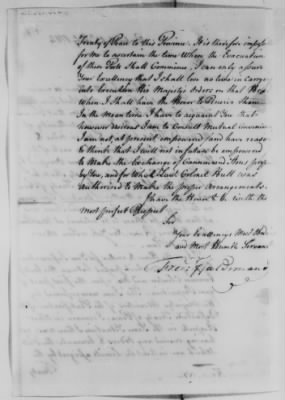 Treaty of Peace to this Province. It is therefore impossible
for me to ascertain the time When the Evacuation
of these Posts Shall Commence, I can only assure
Your Excellency that I shall lose no time in carrying
into Execution His Majesty's Orders on that Head
When I Shall have the Honor to Receive them.
In the Mean time I have to acquaint You that
however desirous I am to Consult Mutual convenience
I am not at present empowered and have reason
to think that I will not in future be empowered
to Make the Exchange of Cannon and Arms proposed
by You, and for Which Lieut Colonel Hull was
authorized to Make the proper Arrangements
I have the Honor to be with the
most perfect Respect
Sir
Your Excellency's Most Obed
and most Humble Servant
Fred: Haldimand